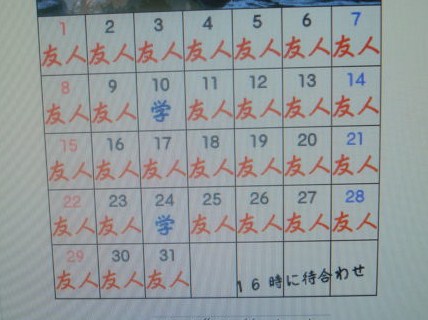 1 2 3 4 5 6 7
友人 友人 友人 友人 友人 友人 友人
8 9 10 11 12 13 14
友人 友人 学 友人 友人 友人 友人
15 16 17 18 19 20 21
友人 友人 友人 友人 友人 友人 友人
22 23 24 25 26 27 28
友人 友人 学 友人 友人 友人 友人
29 30 31
友人 友人 友人
16時に待合わせ